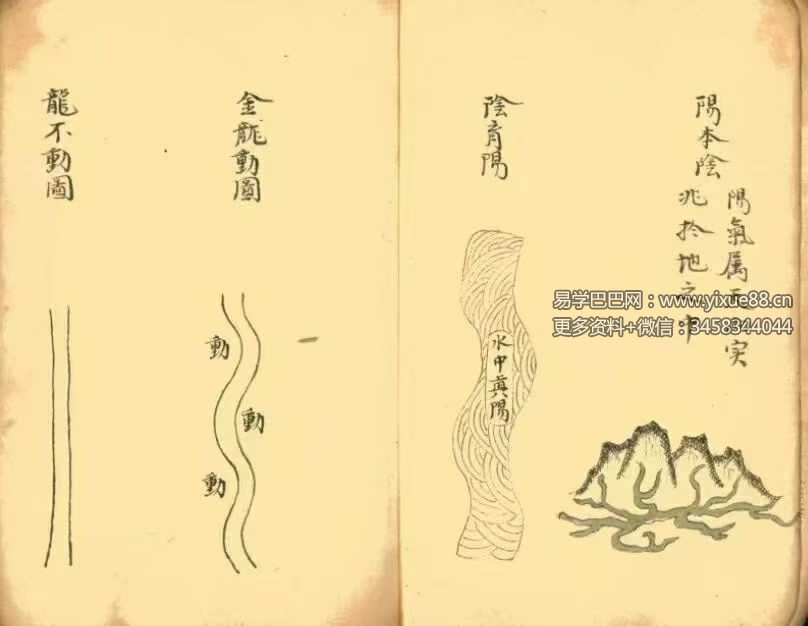 陽本陰
陽氣属实
兆於地之中
陰育陽
水中眞陽
金龍動圖
動
動
動
龍不動圖
易学巴巴网：www.yixue88.cn
更多资料+微信：3458344044